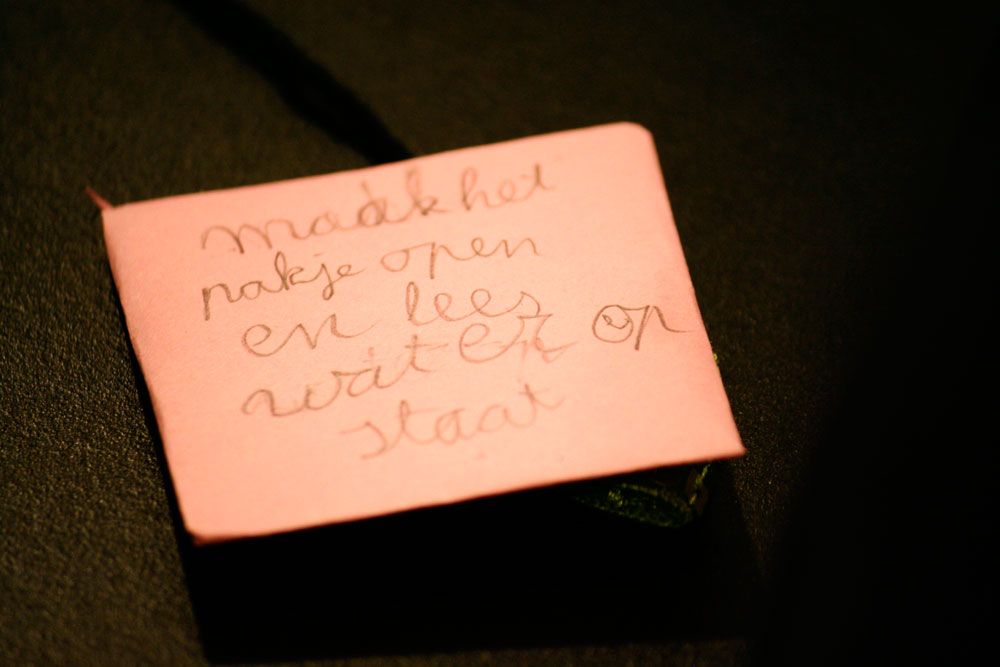 maak het
pakje open
en lees
wat er op
staat